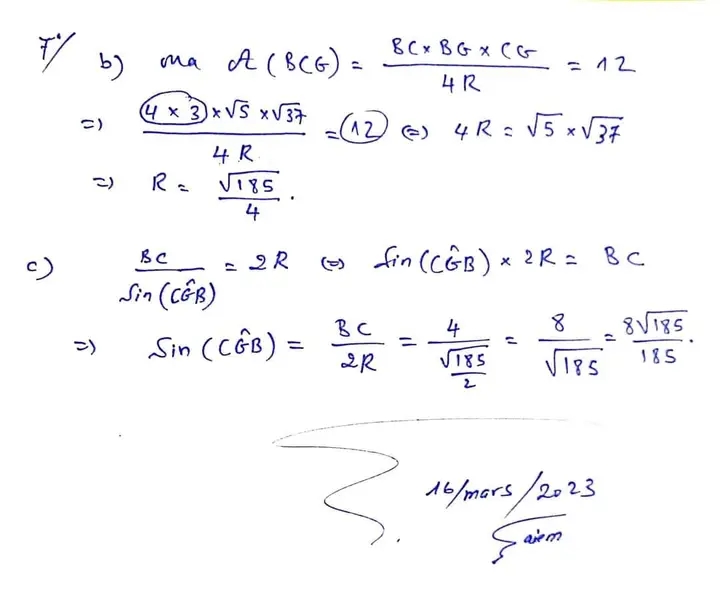 7°/ b) on a A(BCG) = \frac{BC × BG × CG}{4R} = 12
=) \frac{4 × 3 × √5 × √37}{4R} = 12 (=) 4R = √5 × √37
=) R = \frac{√185}{4}.
c) \frac{BC}{Sin(CĜB)} = 2R (=) Sin(CĜB) × 2R = BC
=) Sin(CĜB) = \frac{BC}{2R} = \frac{4}{\frac{√185}{2}} = \frac{8}{√185} = \frac{8√185}{185}.
16/mars/2023